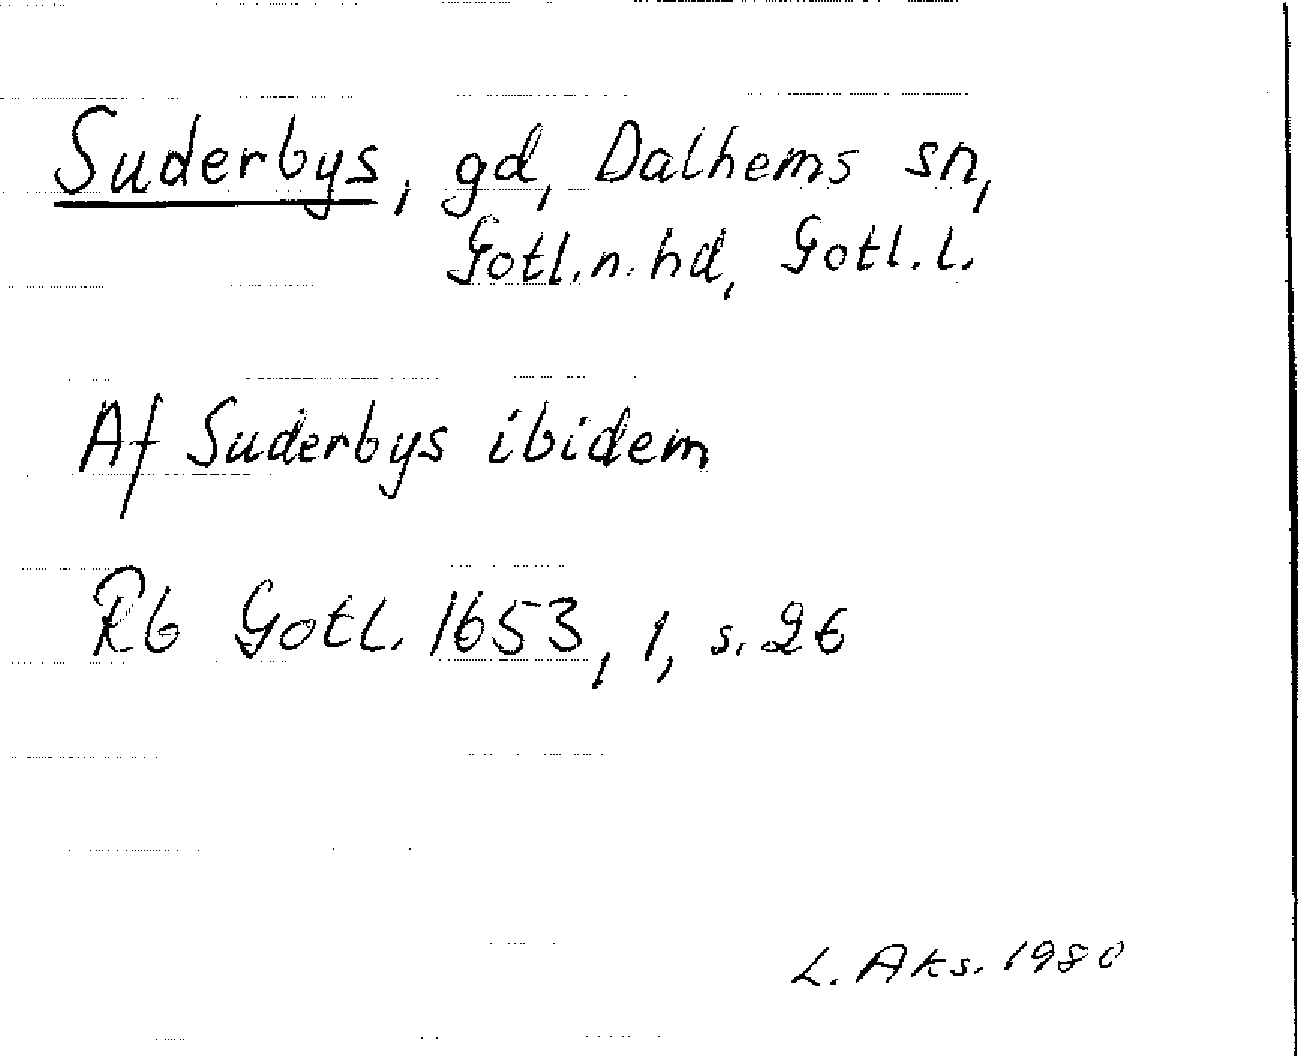 Suderbys, gd, Dalhems sn,
Gotl. n. hd, Gotl. l.
Af Suderbys ibidem
Rb Gotl. 1653, 1, s. 26
L. Aks. 1980